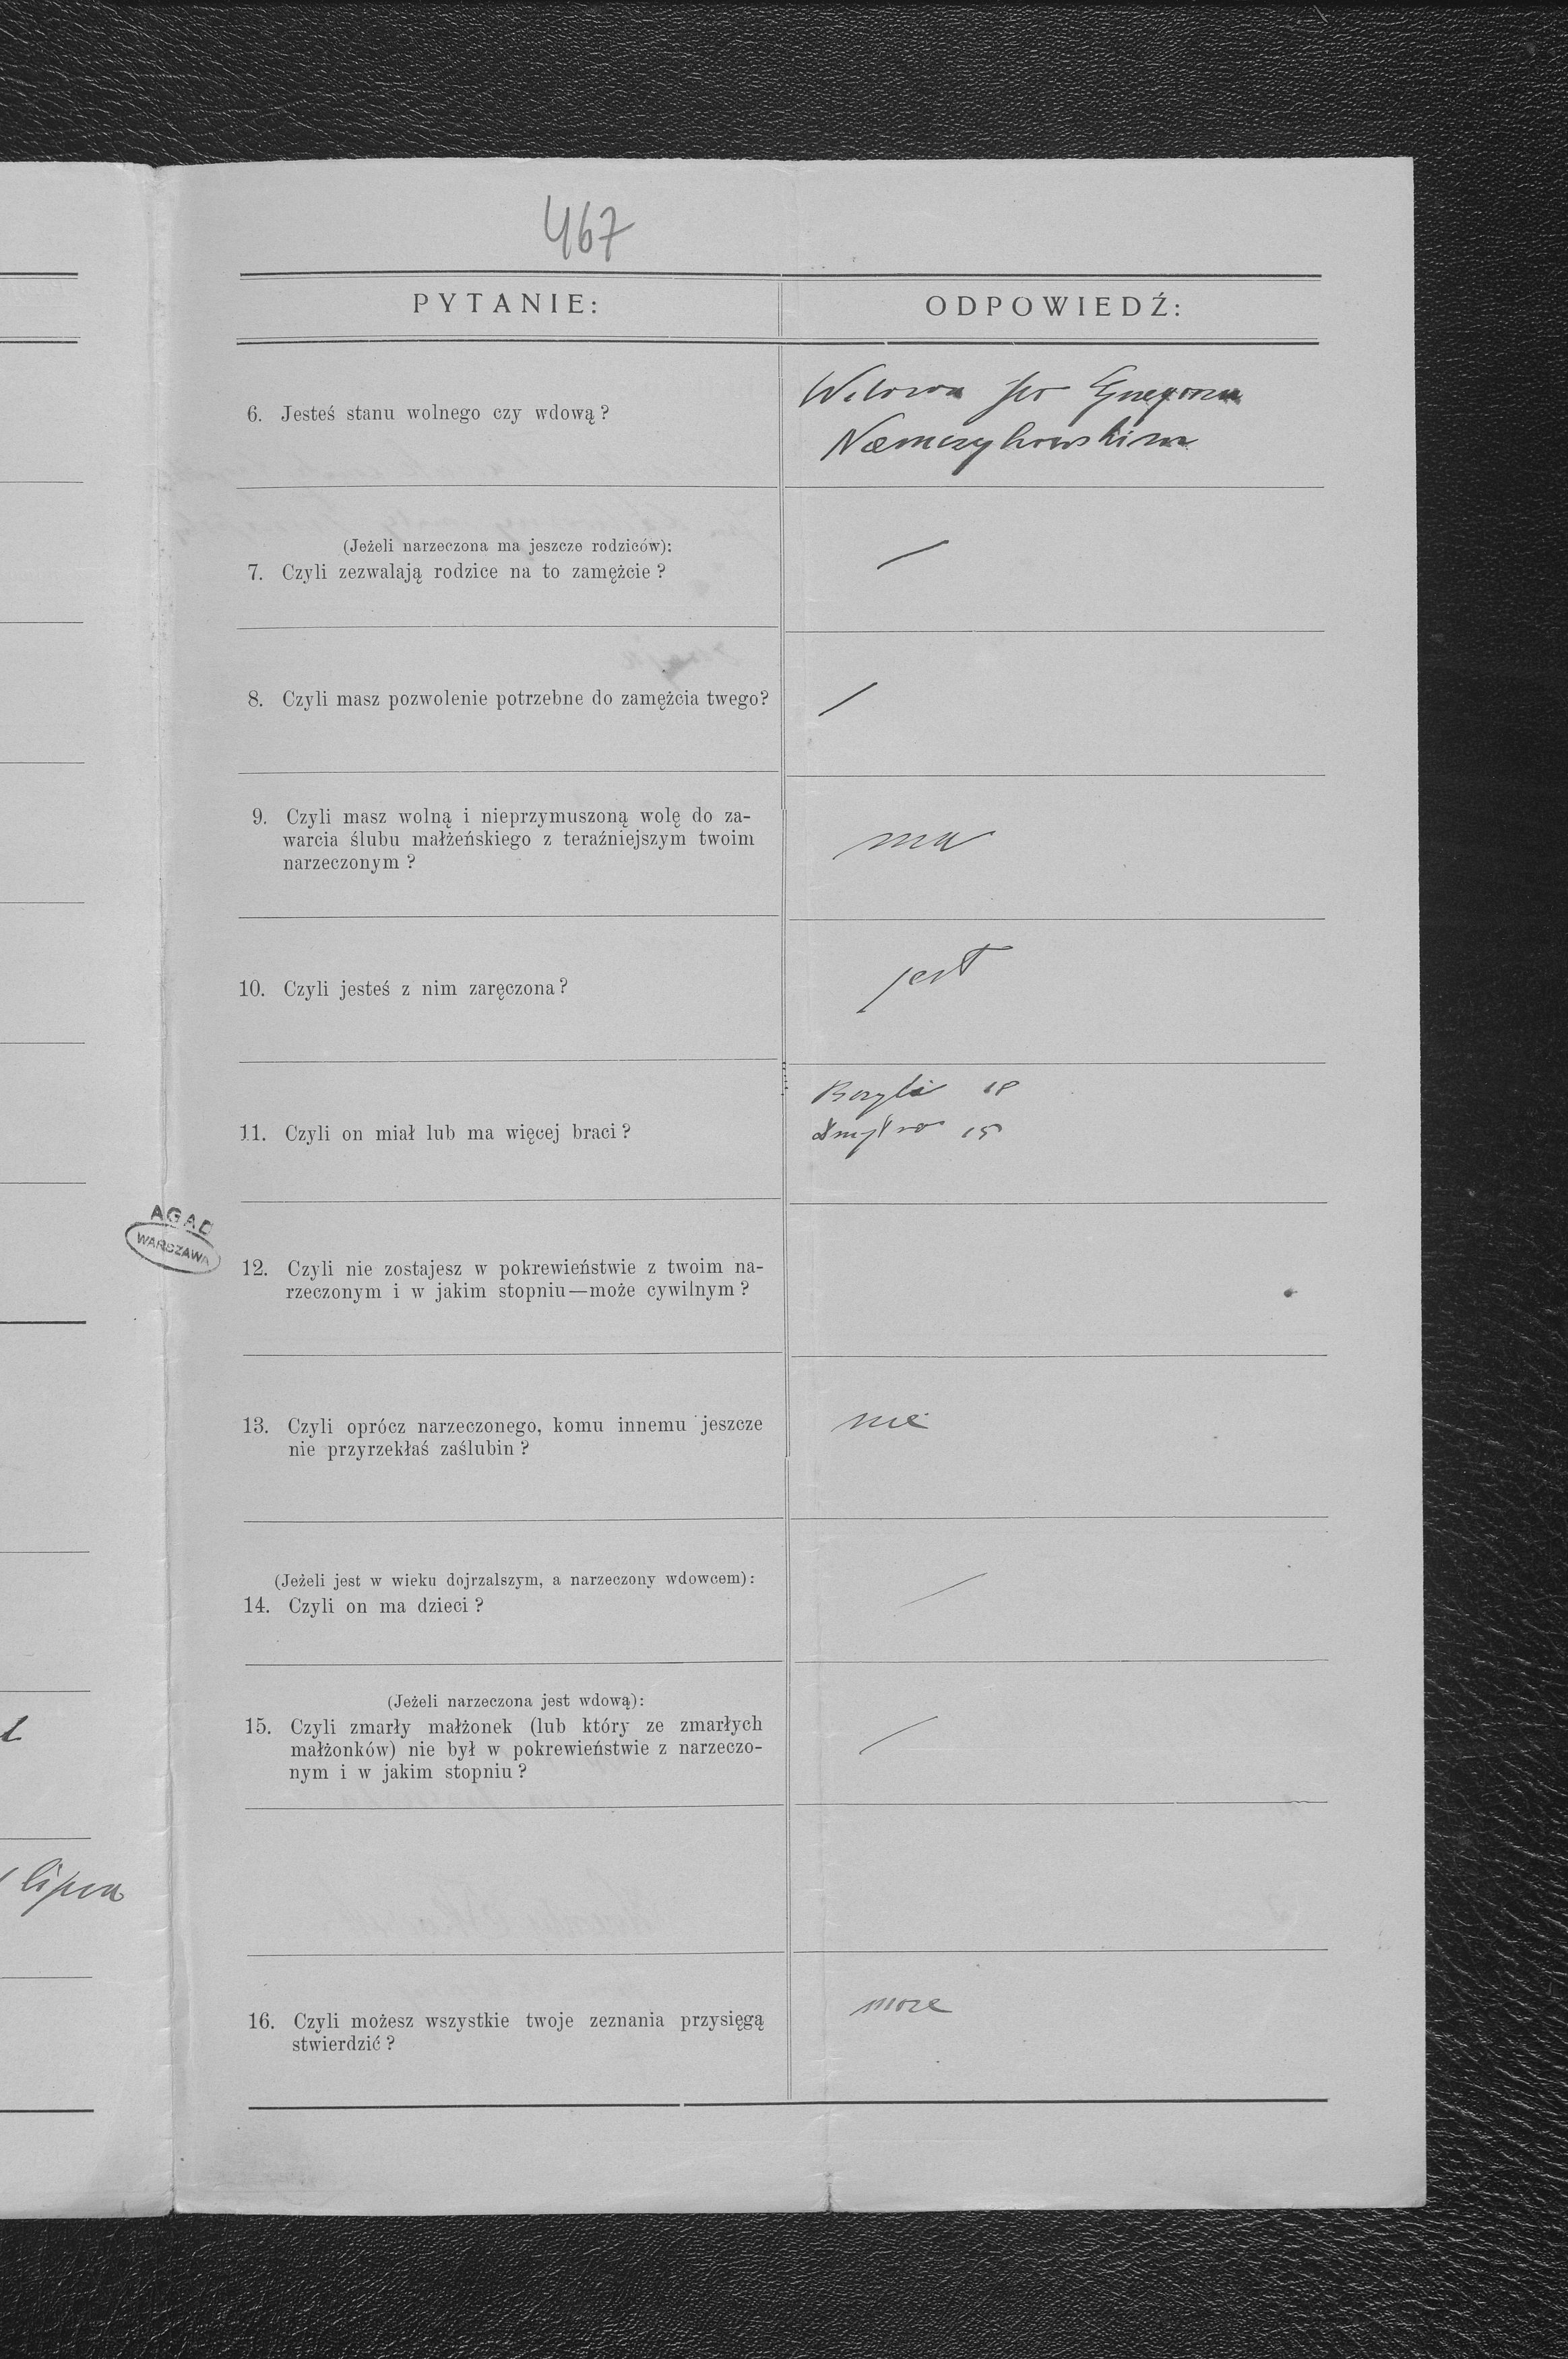 467
PYTANIE:
ODPOWIEDŹ:
6. Jesteś stanu wolnego czy wdową?
Wdowa po
Niemczykowskim
(Jeżeli narzeczona ma jeszcze rodziców):
7. Czyli zezwalają rodzice na to zamężcie?
8. Czyli masz pozwolenie potrzebne do zamężcia twego?
9. Czyli masz wolną i nieprzymuszoną wolę do za-
warcia ślubu małżeńskiego z teraźniejszym twoim
narzeczonym?
ma
10. Czyli jesteś z nim zaręczona?
jest
11. Czyli on miał lub ma więcej braci?
18
Dmytro 15
AGAD
WARSZAWA
12. Czyli nie zostajesz w pokrewieństwie z twoim na-
rzeczonym i w jakim stopniu—może cywilnym?
13. Czyli oprócz narzeczonego, komu innemu jeszcze
nie przyrzekłaś zaślubin?
nie
(Jeżeli jest w wieku dojrzalszym, a narzeczony wdowcem):
14. Czyli on ma dzieci?
(Jeżeli narzeczona jest wdową):
15. Czyli zmarły małżonek (lub który ze zmarłych
małżonków) nie był w pokrewieństwie z narzeczo-
nym i w jakim stopniu?
lipca
16. Czyli możesz wszystkie twoje zeznania przysięgą
stwierdzić?
może